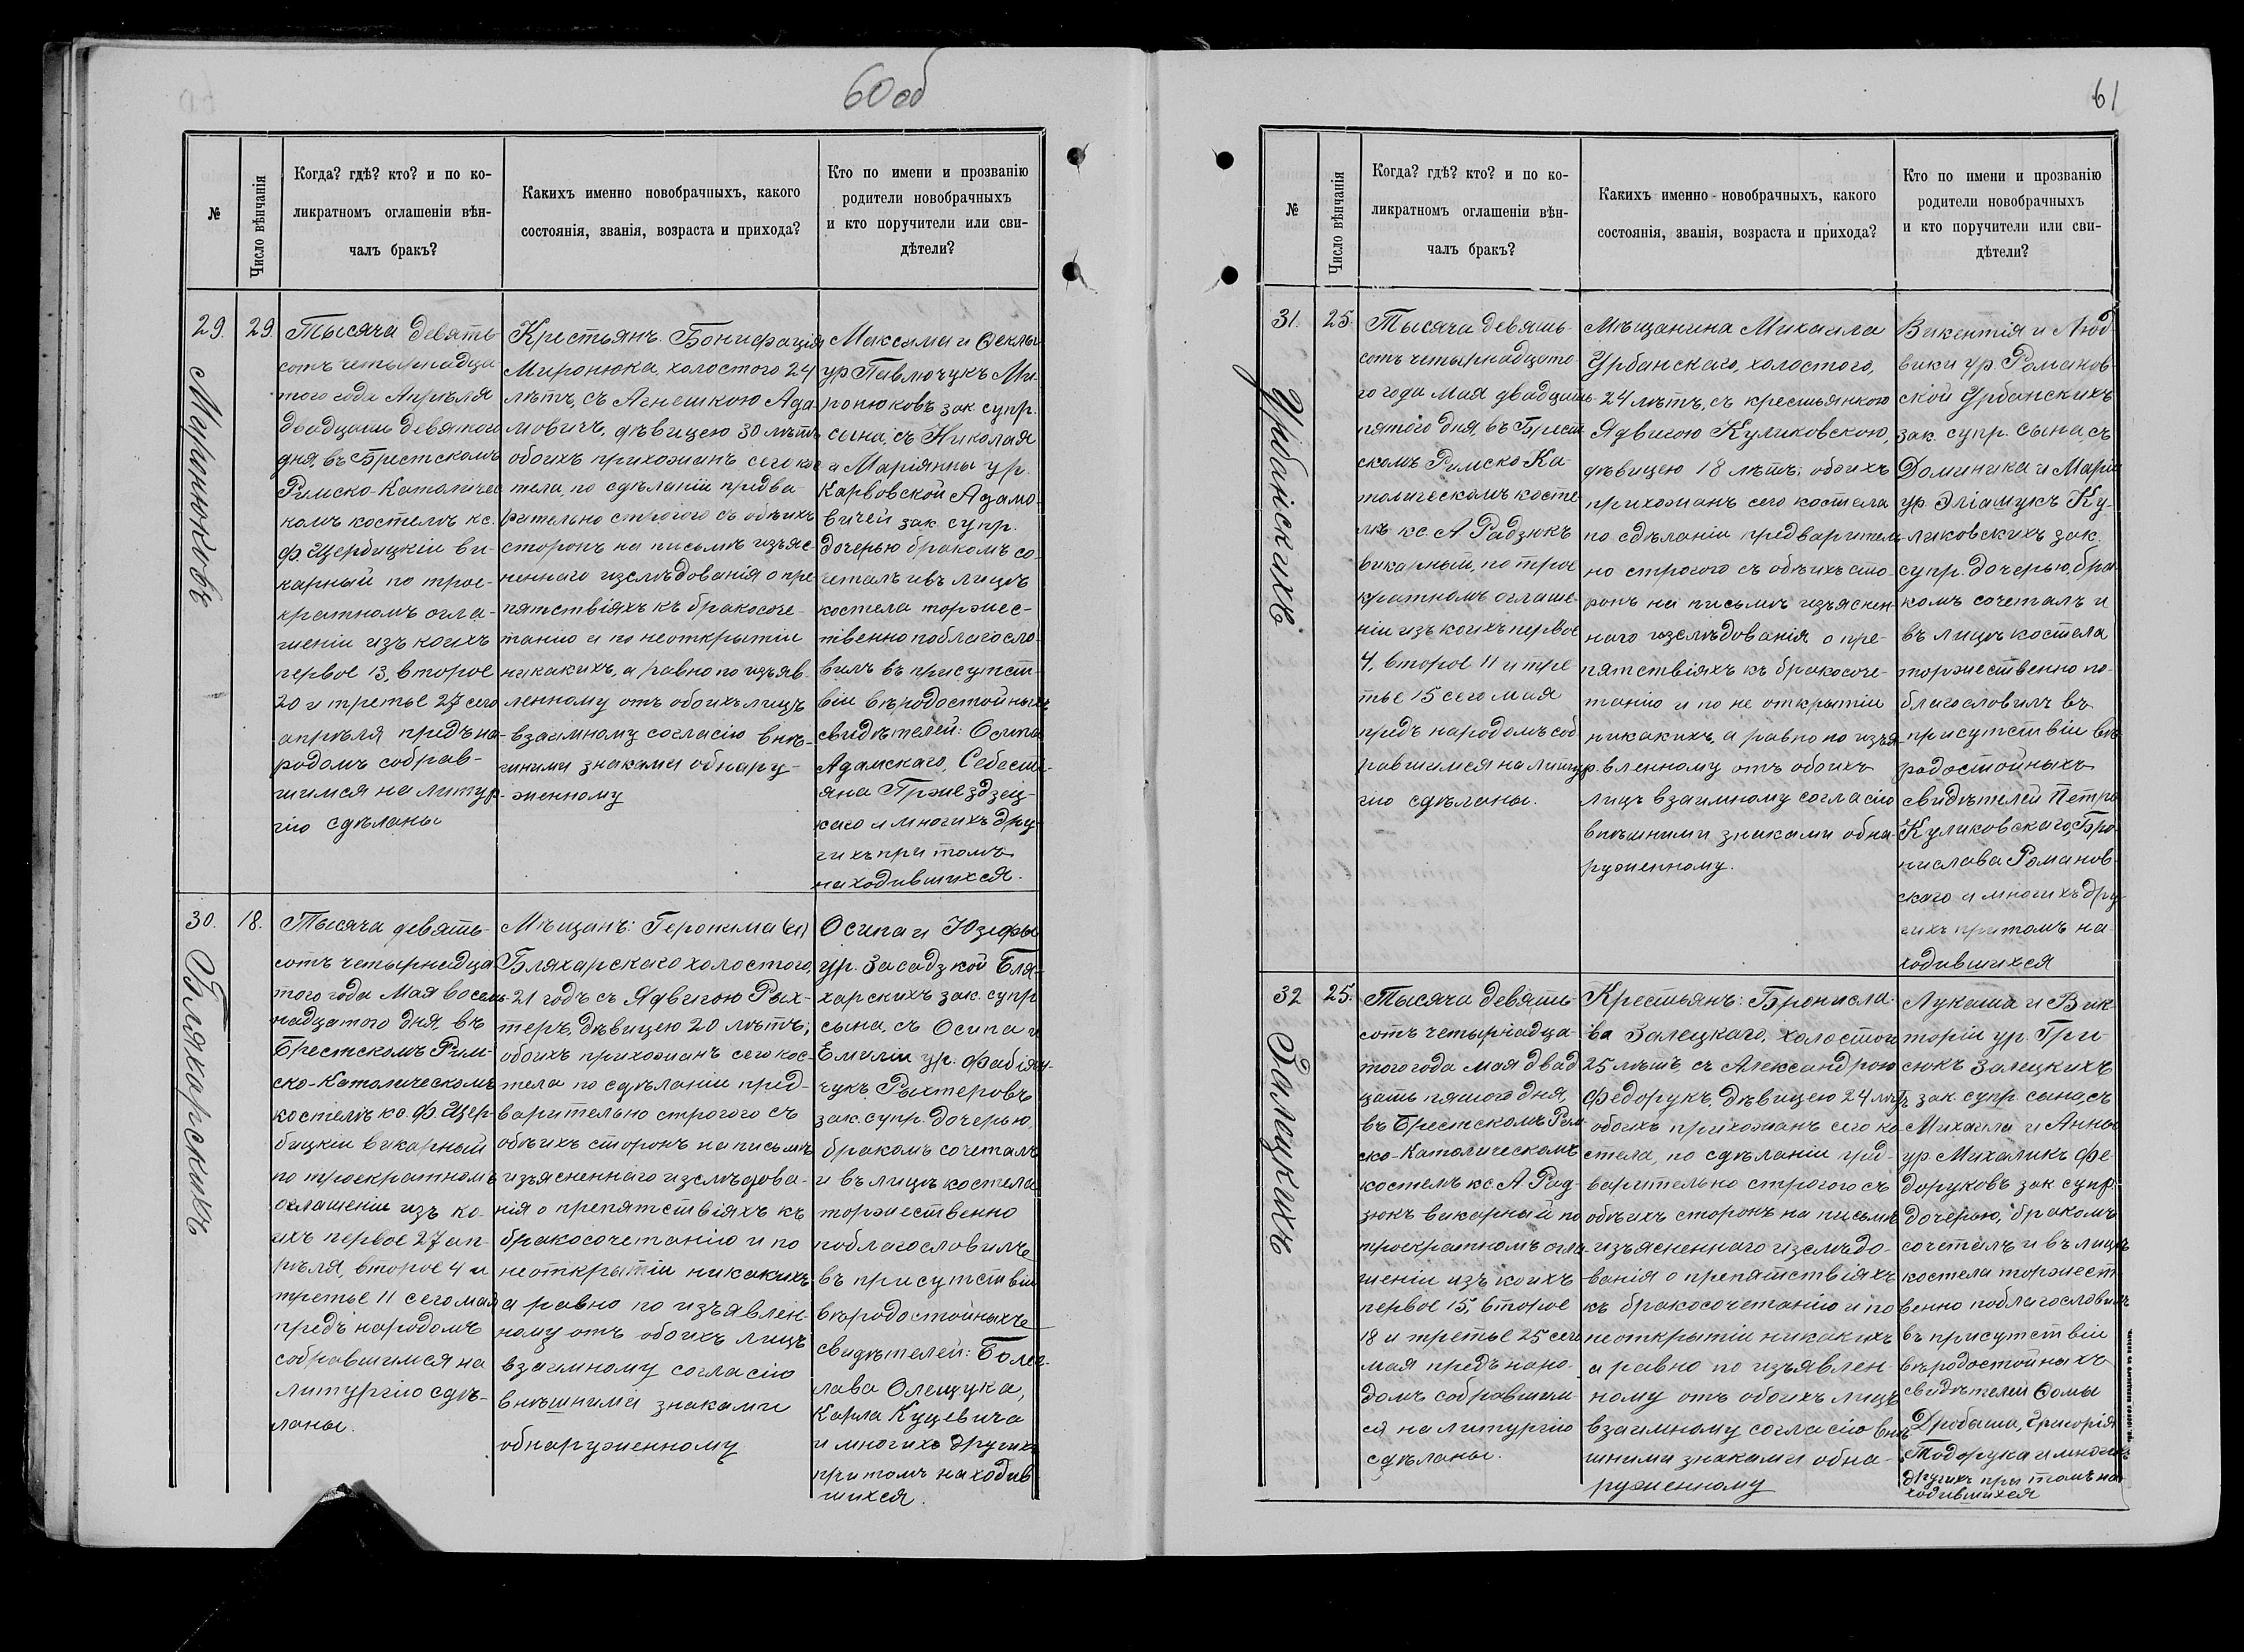 60 об
№
Число вѣнчанія
Когда? гдѣ? кто? и по ко-
ликратномъ оглашеніи вѣн-
чалъ бракъ?
Какихъ именно новобрачныхъ, какого
состоянія, званія, возраста и прихода?
Кто по имени и прозванію
родители новобрачныхъ
и кто поручители или сви-
дѣтели?
29.
Миронюковъ
29.
Тысяча девять-
сотъ четырнадца
того года Апрѣля
двадцать девятого
дня, въ Брестскомъ
Римско-Католичес
комъ костелѣ кс.
Ф. Щербицкій ви-
карный по трое-
кратномъ огла-
шеніи изъ коихъ
первое 13, второе
20 и третье 27 сего
апрѣля предъ на-
родомъ собрав-
шимся на литур-
гію сдѣланы
Крестьянъ Бонифація
Миронюка, холостого 24
лѣтъ, съ Агнешкою Ада-
мовичъ, дѣвицею 30 лѣтъ
обоихъ прихожанъ сего кос
тела, по сдѣланіи предва-
рительно строгого съ обѣихъ
сторонъ на письмѣ изъяс-
неннаго изслѣдованія о пре
пятствіяхъ къ бракосоче-
танію и по неоткрытіи
никакихъ, а равно по изъяв-
ленному отъ обоихъ лицъ
взаимному согласію внѣ-
шними знаками обнару-
женному
Максима и Ѳеклы
ур. Павлючукъ Ми-
ронюковъ зак. супр.
сына, съ Николая
и Маріянны ур.
Карвовской Адамо-
вичей зак. супр.
дочерью бракомъ со-
четалъ и въ лицѣ
костела торжес-
твенно поблагосло-
вилъ въ присутст-
віи вѣродостойныхъ
свидѣтелей: Осипа
Адамскаго, Себесті-
яна Пржездзец-
каго и многихъ дру-
гихъ при томъ
находившихся.
30.
Бляхарскихъ
18.
Тысяча девять-
сотъ четырнадца
того года Мая восем-
надцатого дня, въ
Брестскомъ Рим-
ско-Католическомъ
костелѣ кс. Ф. Щер-
бицкій викарный
по троекратномъ
оглашеніи изъ ко-
ихъ первое 27 ап-
рѣля, второе 4 и
третье 11 сего мая
предъ народомъ
собравшимся на
литургію сдѣ-
ланы.
Мѣщанъ: Геронима (и)
Бляхарскаго холостого,
21 годъ съ Ядвигою Рых-
теръ, дѣвицею 20 лѣтъ;
обоихъ прихожанъ сего кос-
тела по сдѣланіи пред-
варительно строгого съ
обѣихъ сторонъ на письмѣ
изъясненнаго изслѣдова-
нія о препятствіяхъ къ
бракосочетанію и по
неоткрытіи никакихъ
а равно по изъявлен-
ному отъ обоихъ лицъ
взаимному согласію
внѣшними знаками
обнаруженному
Осипа и Юзефы
ур. Засадзкой Бля-
харскихъ зак. супр
сына, съ Осипа и
Емиліи ур. Фабіян-
чукъ Рыхтеровъ
зак. супр. дочерью
бракомъ сочеталъ
и въ лицѣ костела
торжественно
поблагословилъ
въ присутствіи
вѣродостойныхъ
свидѣтелей: Болес-
лава Олещука,
Карла Куцевича
и многихъ другихъ
при томъ находив
шихся.
61
№
Число вѣнчанія
Когда? гдѣ? кто? и по ко-
ликратномъ оглашеніи вѣн-
чалъ бракъ?
Какихъ именно новобрачныхъ, какого
состоянія, званія, возраста и прихода?
Кто по имени и прозванію
родители новобрачныхъ
и кто поручители или сви-
дѣтели?
31.
Урбанскихъ
25.
Тысяча девять-
сотъ четырнадцато
го года Мая двадцать
пятого дня, въ Брест
скомъ Римско-Ка-
толическомъ косте
лѣ кс. А Радзюкъ
викарный, по трое
кратномъ оглаше-
ніи изъ коихъ первое
4, второе 11 и тре
тье 15 сего мая
предъ народомъ соб
равшимся на литур
гію сдѣланы.
Мѣщанина Михаила
Урбанскаго, холостого,
24 лѣтъ, съ крестьянкою
Ядвигою Куликовскою,
дѣвицею 18 лѣтъ; обоихъ
прихожанъ сего костела
по сдѣланіи предваритель-
но строгого съ обѣихъ сто-
ронъ на письмѣ изъяснен-
наго изслѣдованія о пре-
пятствіяхъ къ бракосоче-
танію и по не открытіи
никакихъ, а равно по изъя-
вленному отъ обоихъ
лицъ взаимному согласію
внѣшними знаками обна-
руженному.
Викентія и Люд-
вики ур. Романов-
ской Урбанскихъ
зак. супр. сына, съ
Доминика и Маріи
ур. Эліашукъ Ку-
ликовскихъ зак.
супр. дочерью, бра-
комъ сочеталъ и
въ лицѣ костела
торжественно по-
благословилъ въ
присутствіи вѣ-
родостойныхъ
свидѣтелей Петра
Куликовскаго, Бро-
нислава Романов-
скаго и многихъ дру
гихъ притомъ на-
ходившихся
32
Залецкихъ
25.
Тысяча девять-
сотъ четырнадца-
того года мая двад
цать пятого дня,
въ Брестскомъ Рим
ско-Католическомъ
костелѣ кс А. Рад-
зюкъ викарный по
троекратномъ огла-
шеніи изъ коихъ
первое 15, второе
18 и третье 25 сего
мая предъ наро-
домъ собравшим
ся на литургію
сдѣланы.
Крестьянъ: Бронисла-
ва Залецкаго, холостого
25 лѣтъ, съ Александрою
Федорукъ, дѣвицею 24 лѣтъ
обоихъ прихожанъ сего ко
стела, по сдѣланіи пред-
варительно строгого съ
обѣихъ сторонъ на письмѣ
изъясненнаго изслѣдо-
ванія о препятствіяхъ
къ бракосочетанію и по
неоткрытіи никакихъ
а равно по изъявлен-
ному отъ обоихъ лицъ
взаимному согласію внѣ
шними знаками обна-
руженному
Лукаша и Вик-
торіи ур. Гри-
сюкъ Залецкихъ
зак. супр. сына, съ
Михаила и Анны
ур. Михаликъ Фе-
доруковъ зак супр.
дочерью, бракомъ
сочеталъ и въ лицѣ
костела торжест-
венно поблагословилъ
въ присутствіи
вѣродостойныхъ
свидѣтелей Ѳомы
Дробыша, Григорія
Тодорука и многихъ
другихъ при томъ на-
ходившихся